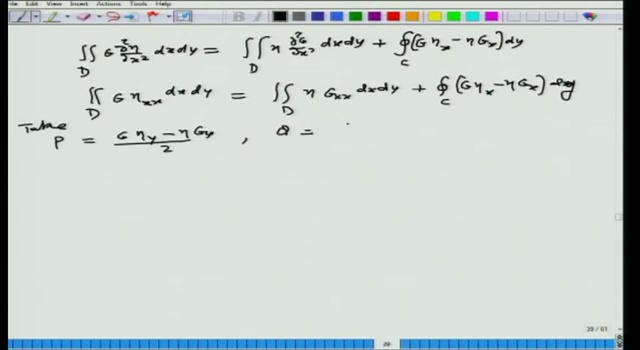 File Edit View Insert Actions Tools Help
∬_D G ∂²η/∂x² dxdy = ∬_D η ∂²G/∂x² dxdy + ∮_C (G η_x − η G_x) dy
∬_D G η_xx dxdy = ∬_D η G_xx dxdy + ∮_C (G η_x − η G_x) dy
Take P = (G η_y − η G_y)/2 , Q =
39